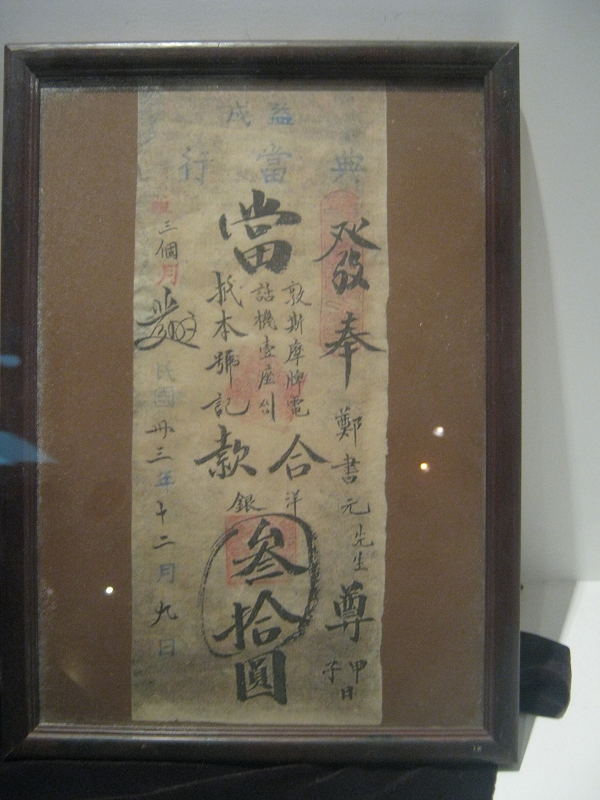 益成
典當行
發奉
鄭書元先生
尊
甲日
子
當
敦斯摩牌電
話機壹座
抵本號記
合款
洋銀
叁拾圓
三個月
民國卅三年十二月九日